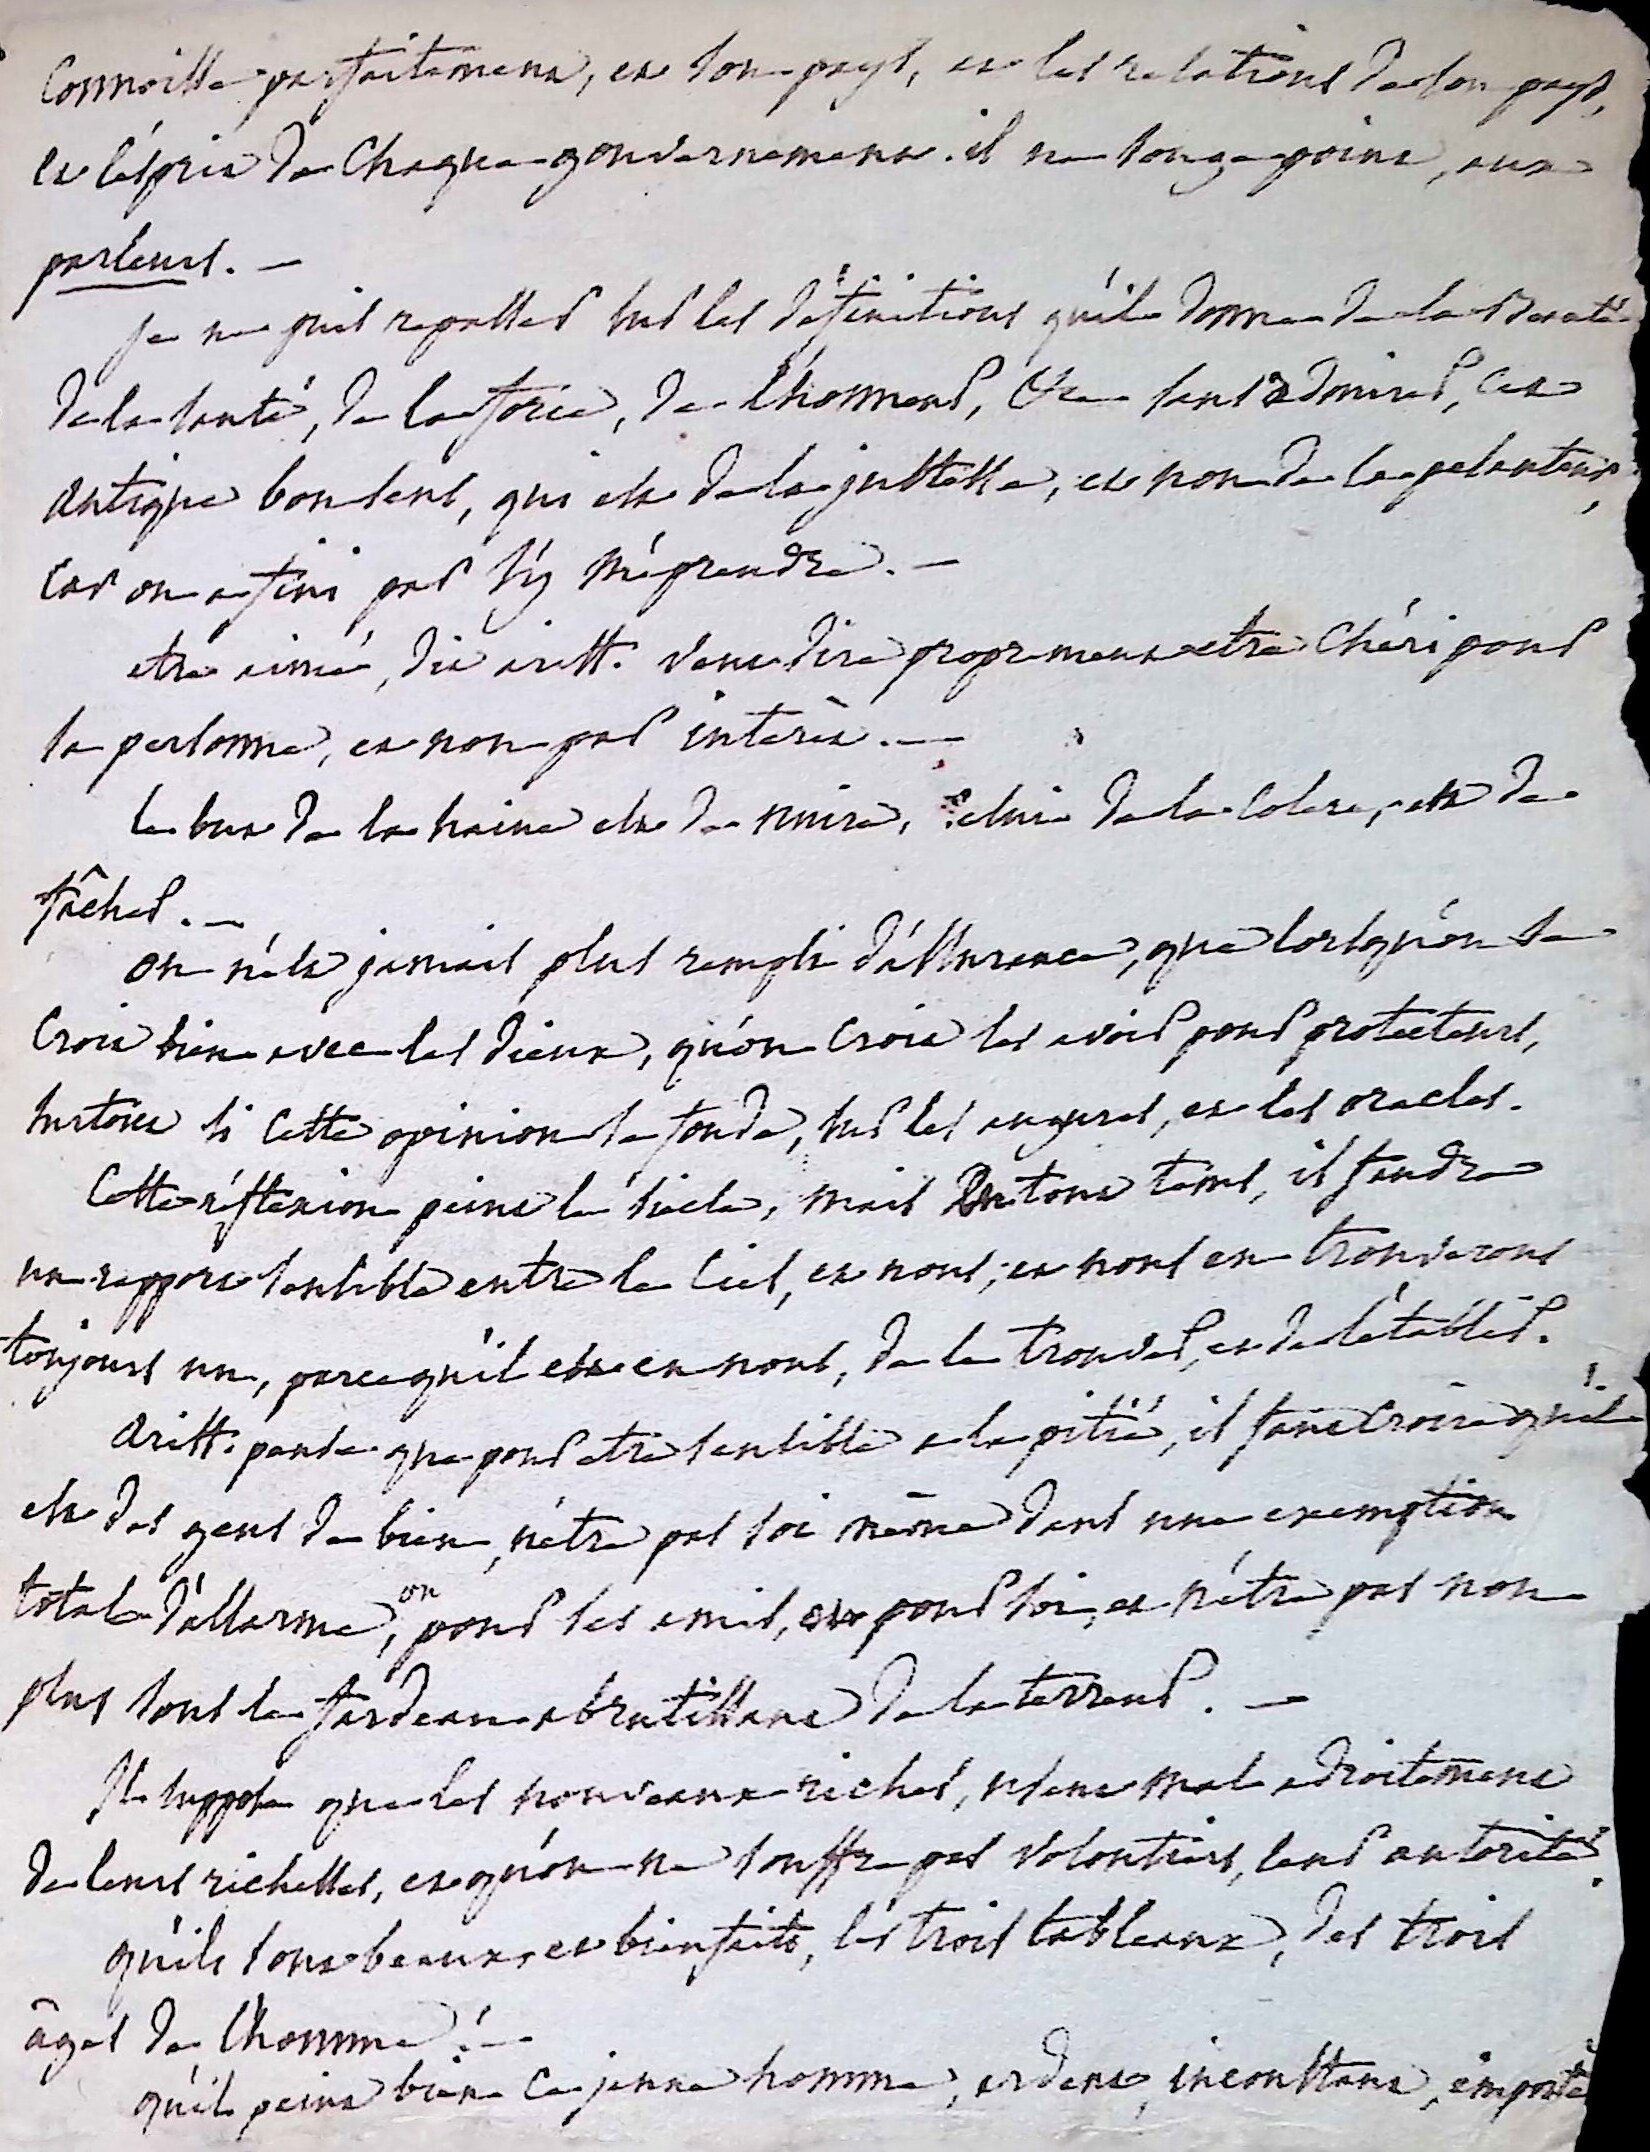 Connoisse parfaitement, et son pays, et les relations de son pays,
et l'esprit de chaque gouvernement. il ne songe point, aux
parleurs. —
je ne puis repasser sur les définitions qu'il donne de la beauté
de la santé, de la force, de l'honneur, &c. sans admirer, cet
antique bon sens, qui est de la justesse, et non de la pesanteur,
car on a fini par s'y méprendre. —
etre aimé, dit arist. veut dire proprement etre chéri pour
sa personne, et non par intérèt. —
le but de la haine est de nuire, celui de la colere, est de
fâcher. —
on n'est jamais plus rempli d'assurance, que lorsqu'on se
croit bien avec les dieux, qu'on croit les avoir pour protecteurs,
surtout si cette opinion se fonde, sur les augures, et les oracles.
Cette réflexion peint le siècle, mais en tout tems, il faudra
un rapport sensible entre le ciel, et nous; et nous en trouverons
toujours un, parce qu'il est en nous, de le trouver, et de l'établir.
arist. pense que pour etre sensible a la pitié, il faut croire qu'il
est des gens de bien, n'être pas soi même dans une exemption
totale d'allarme, ou pour ses amis, ou pour soi, et n'être pas non
plus sous le fardeau abrutissant de la terreur. —
Il suppose que les nouveaux riches, usent mal adroitement
de leurs richesses, et qu'on ne souffre pas volontiers, leur autorité.
qu'ils sont beaux et bienfaits, les trois tableaux, des trois
âges de l'homme! —
qu'il peint bien ce jeune homme, ardent, inconstant, emporté